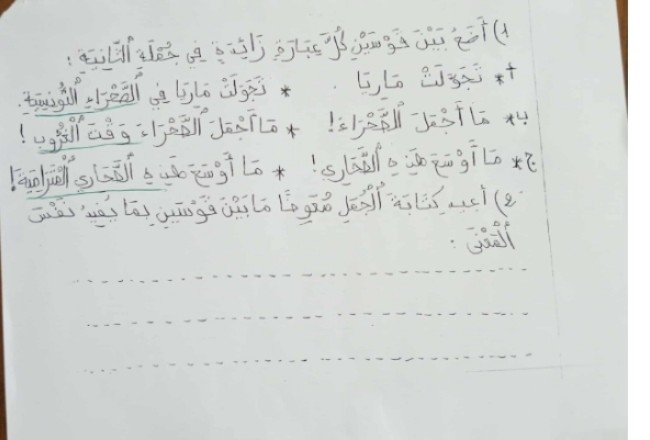 1) أَضَعُ بَيْنَ قَوْسَيْنِ كُلَّ عِبَارَةٍ زَائِدَةٍ فِي جُمْلَةِ الثَّانِيَةِ :
أ* تَجَوَّلَتْ مَارِيَا . * تَجَوَّلَتْ مَارِيَا فِي الصَّحْرَاءِ التُّونِسِيَّةِ.
ب* مَا أَجْمَلَ الصَّحْرَاءَ! * مَا أَجْمَلَ الصَّحْرَاءَ وَقْتَ الْغُرُوبِ !
ج* مَا أَوْسَعَ هَذِهِ الصَّحَارِي! * مَا أَوْسَعَ هَذِهِ الصَّحَارِي الْمُتَرَامِيَةَ!
2) أعيد كِتَابَةَ الْجُمَلِ مُعَوِّضًا مَا بَيْنَ قَوْسَيْنِ بِمَا يُفِيدُ نَفْسَ
الْمَعْنَى :